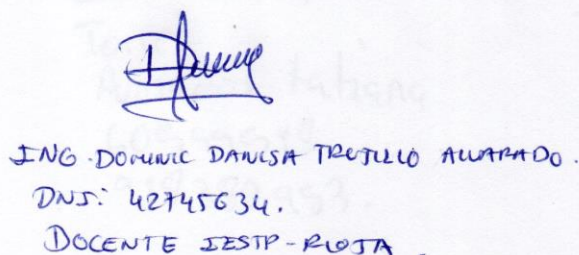 ING. DOMINIC DANISA TRUJILLO ALVARADO.
DNI: 42745634.
DOCENTE IESTP-RIOJA.